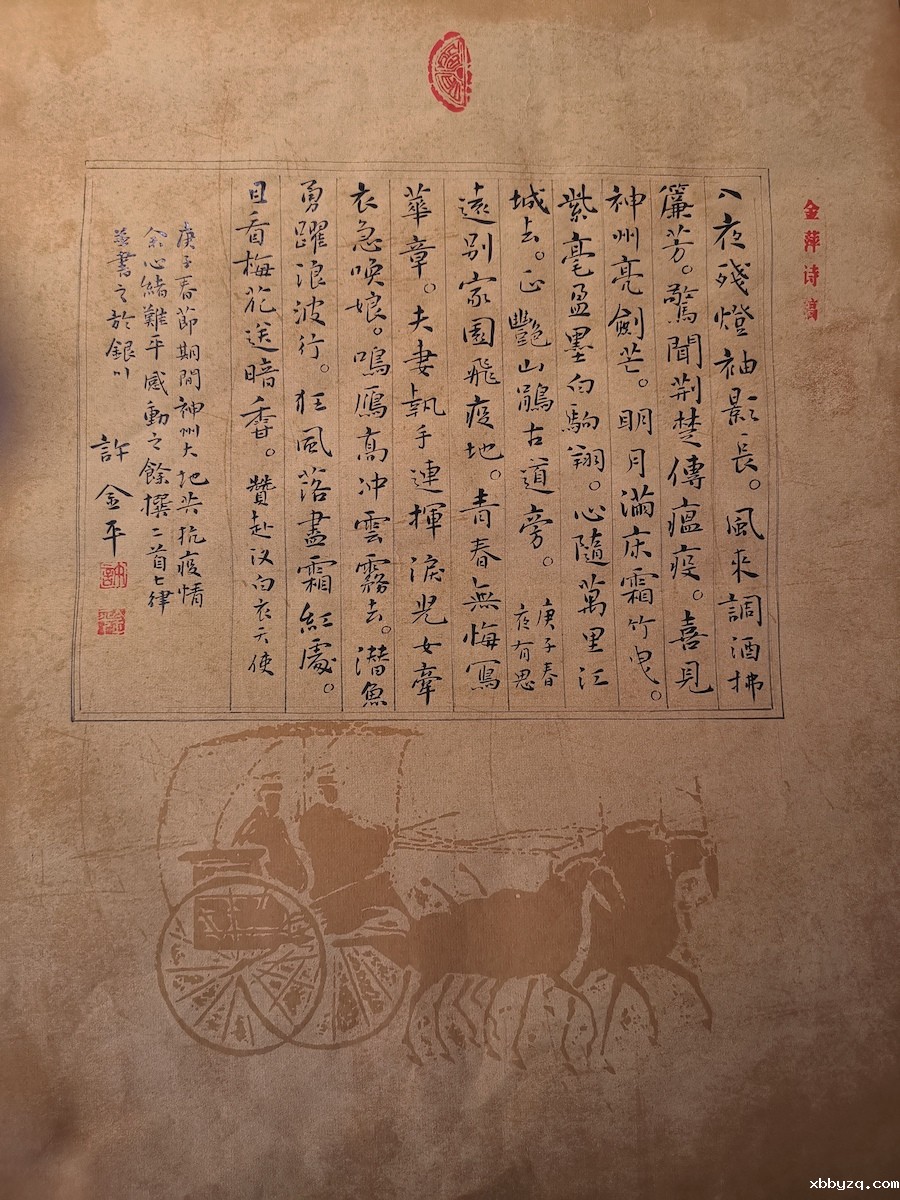 金萍诗稿
入夜殘燈袖影長。風來調酒拂
簾芳。驚聞荆楚傳瘟疫。喜見
神州亮劍芒。明月滿床霜竹曳。
紫毫盈墨白駒翔。心隨萬里江
城去。正艷山鵑古道旁。庚子春
夜有思
遠別家園飛疫地。青春無悔寫
華章。夫妻執手連揮淚兒女牽
衣急喚娘。鳴雁高冲雲霧去。潜魚
勇躍浪波行。狂風落盡霜紅處。
且看梅花送暗香。贊赴汉白衣天使
庚子春節期間神州大地共抗疫情
余心緒難平感動之餘撰二首七律
並書之於銀川
許金平
xbbyzq.com